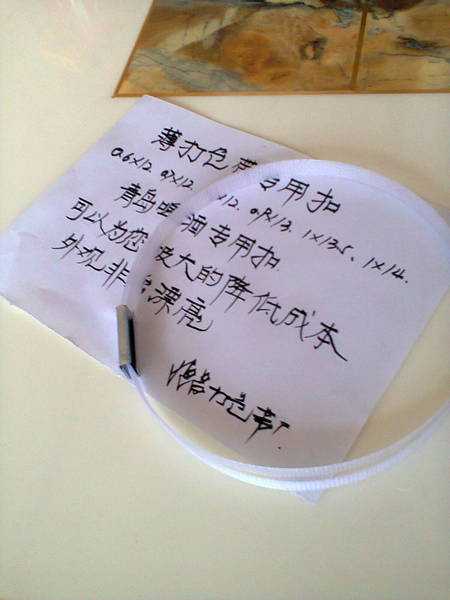 薄打包带专用扣
0.6×12. 0.7×12. ×12. 0.8×13. 1×13.5、1×14.
青岛啤酒专用扣
可以为您最大的降低成本
外观非常漂亮
打包带厂